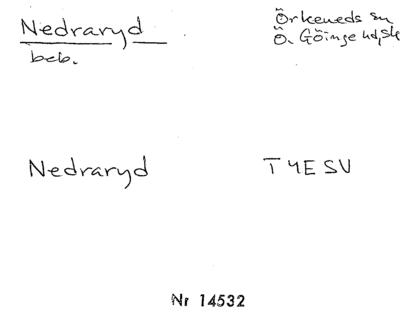 Nedraryd
beb.
Örkeneds sn
Ö. Göinge hd, Sk
Nedraryd
T 4E SV
Nr 14532